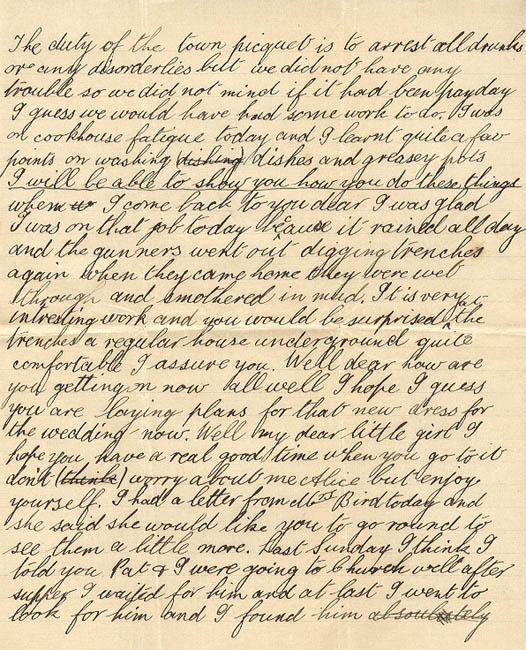 The duty of the town picquet is to arrest all drunks
or any disorderlies but we did not have any
trouble so we did not mind if it had been payday
I guess we would have had some work to do. I was
on cookhouse fatigue today and I learnt quite a few
points on washing dishing dishes and greasey pots
I will be able to show you how you do these things
when I come back to you dear I was glad
I was on that job today because it rained all day
and the gunners went out digging trenches
again when they came home they were wet
through and smothered in mud. It is very
intresting work and you would be surprised the
trenches a regular house underground quite
comfortable I assure you. Well dear how are
you getting on now all well I hope I guess
you are laying plans for that new dress for
the wedding now. Well my dear little girl I
hope you have a real good time when you go to it
don't (think) worry about me Alice but enjoy
yourself. I had a letter from Mrs Bird today and
she said she would like you to go round to
see them a little more. Last Sunday I think I
told you Pat & I were going to Church well after
supper I waited for him and at last I went to
look for him and I found him absoulutely